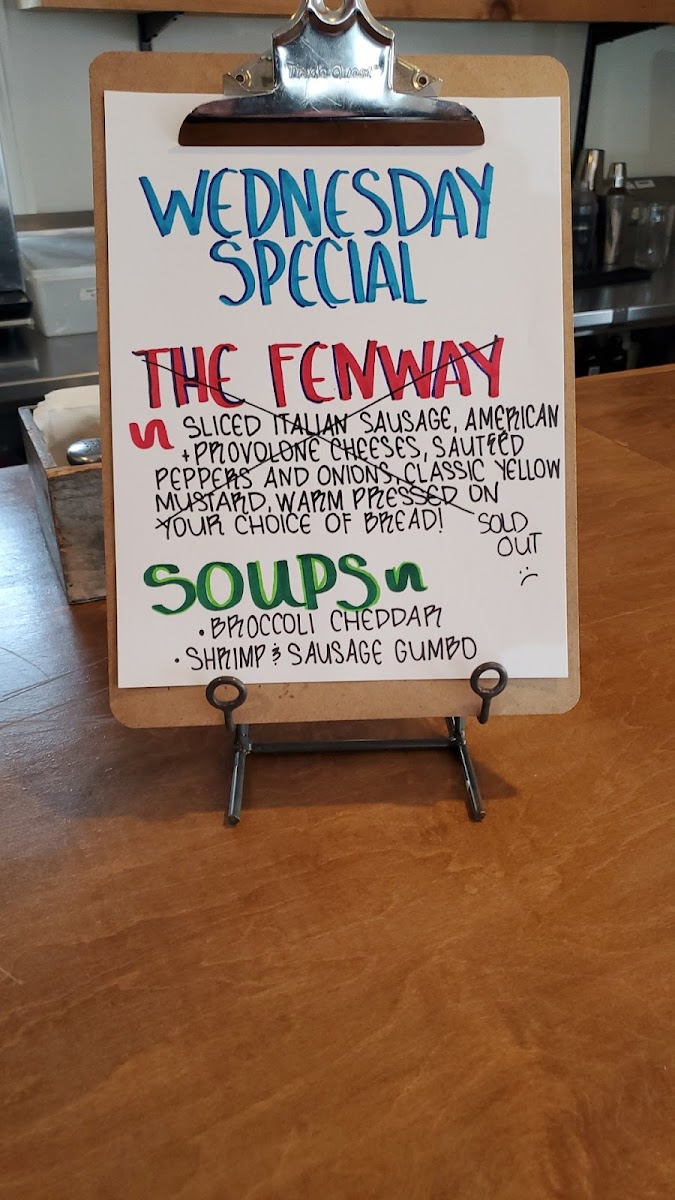 Think Quest
WEDNESDAY
SPECIAL
THE FENWAY
SLICED ITALIAN SAUSAGE, AMERICAN
+ PROVOLONE CHEESES, SAUTEED
PEPPERS AND ONIONS, CLASSIC YELLOW
MUSTARD, WARM PRESSED ON
YOUR CHOICE OF BREAD!
SOLD
OUT
:(
SOUPS
• BROCCOLI CHEDDAR
• SHRIMP & SAUSAGE GUMBO